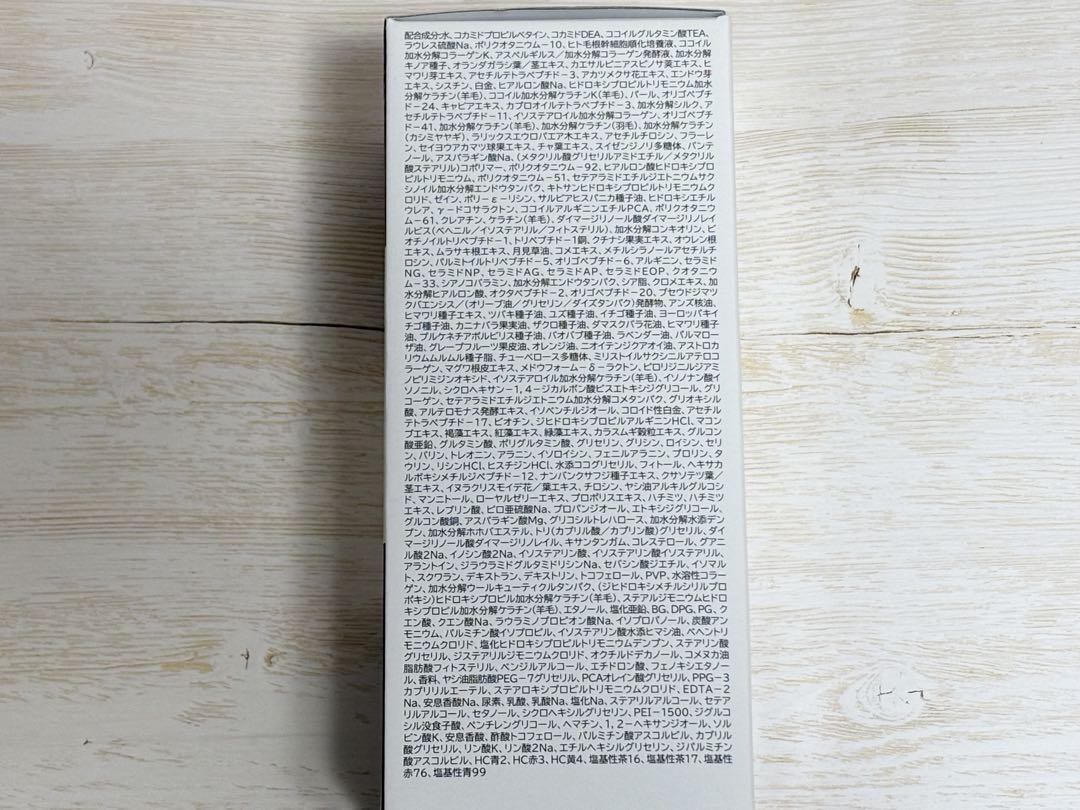 配合成分:水、コカミドプロピルベタイン、コカミドDEA、ココイルグルタミン酸TEA、
ラウレス硫酸Na、ポリクオタニウム－10、ヒト毛根幹細胞順化培養液、ココイル
加水分解コラーゲンK、アスペルギルス／加水分解コラーゲン発酵液、加水分解
キノア種子、オランダガラシ葉／茎エキス、カエサルピニアスピノサ莢エキス、ヒ
マワリ芽エキス、アセチルテトラペプチド－3、アカツメクサ花エキス、エンドウ芽
エキス、シスチン、白金、ヒアルロン酸Na、ヒドロキシプロピルトリモニウム加水
分解ケラチン（羊毛）、ココイル加水分解ケラチンK（羊毛）、パール、オリゴペプチ
ド－24、キャビアエキス、カプロオイルテトラペプチド－3、加水分解シルク、ア
セチルテトラペプチド－11、イソステアロイル加水分解コラーゲン、オリゴペプチ
ド－41、加水分解ケラチン（羊毛）、加水分解ケラチン（羽毛）、加水分解ケラチン
（カシミヤヤギ）、ラリックスエウロパエア木エキス、アセチルチロシン、フラーレ
ン、セイヨウアカマツ球果エキス、チャ葉エキス、スイゼンジノリ多糖体、パンテ
ノール、アスパラギン酸Na、（メタクリル酸グリセリルアミドエチル／メタクリル
酸ステアリル）コポリマー、ポリクオタニウム－92、ヒアルロン酸ヒドロキシプロ
ピルトリモニウム、ポリクオタニウム－51、セテアラミドエチルジエトニウムサク
シノイル加水分解エンドウタンパク、キトサンヒドロキシプロピルトリモニウムク
ロリド、ゼイン、ポリ－ε－リシン、サルビアヒスパニカ種子油、ヒドロキシエチル
ウレア、γ－ドコサラクトン、ココイルアルギニンエチルPCA、ポリクオタニウ
ム－61、クレアチン、ケラチン（羊毛）、ダイマージリノール酸ダイマージリノレイ
ルビス（ベヘニル／イソステアリル／フィトステリル）、加水分解コンキオリン、ビ
オチノイルトリペプチド－1、トリペプチド－1銅、クチナシ果実エキス、オウレン根
エキス、ムラサキ根エキス、月見草油、コメエキス、メチルシラノールアセチルチ
ロシン、パルミトイルトリペプチド－5、オリゴペプチド－6、アルギニン、セラミド
NG、セラミドNP、セラミドAG、セラミドAP、セラミドEOP、クオタニウ
ム－33、シアノコバラミン、加水分解エンドウタンパク、シア脂、クロメエキス、加
水分解ヒアルロン酸、オクタペプチド－2、オリゴペプチド－20、プセウドジマツ
クバエンシス／（オリーブ油／グリセリン／ダイズタンパク）発酵物、アンズ核油、
ヒマワリ種子エキス、ツバキ種子油、ユズ種子油、イチゴ種子油、ヨーロッパキイ
チゴ種子油、カニナバラ果実油、ザクロ種子油、ダマスクバラ花油、ヒマワリ種子
油、プルケネチアボルビリス種子油、バオバブ種子油、ラベンダー油、パルマロー
ザ油、グレープフルーツ果皮油、オレンジ油、ニオイテンジクアオイ油、アストロカ
リウムムルムル種子脂、チューベロース多糖体、ミリストイルサクシニルアテロコ
ラーゲン、マグワ根皮エキス、メドウフォーム－δ－ラクトン、ピロリジニルジアミ
ノピリミジンオキシド、イソステアロイル加水分解ケラチン（羊毛）、イソノナン酸イ
ソノニル、シクロヘキサン－1，4－ジカルボン酸ビスエトキシジグリコール、グリ
コーゲン、セテアラミドエチルジエトニウム加水分解コメタンパク、グリオキシル
酸、アルテロモナス発酵エキス、イソペンチルジオール、コロイド性白金、アセチル
テトラペプチド－17、ビオチン、ジヒドロキシプロピルアルギニンHCl、マコン
ブエキス、褐藻エキス、紅藻エキス、緑藻エキス、カラスムギ穀粒エキス、グルコン
酸亜鉛、グルタミン酸、ポリグルタミン酸、グリセリン、グリシン、ロイシン、セリ
ン、バリン、トレオニン、アラニン、イソロイシン、フェニルアラニン、プロリン、タ
ウリン、リシンHCl、ヒスチジンHCl、水添ココグリセリル、フィトール、ヘキサカ
ルボキシメチルジペプチド－12、ナンバンクサフジ種子エキス、クサソテツ葉／
茎エキス、イヌラクリスモイデ花／葉エキス、チロシン、ヤシ油アルキルグルコシ
ド、マンニトール、ローヤルゼリーエキス、プロポリスエキス、ハチミツ、ハチミツ
エキス、レブリン酸、ピロ亜硫酸Na、プロパンジオール、エトキシジグリコール、
グルコン酸銅、アスパラギン酸Mg、グリコシルトレハロース、加水分解水添デン
プン、加水分解ホホバエステル、トリ（カプリル酸／カプリン酸）グリセリル、ダイ
マージリノール酸ダイマージリノレイル、キサンタンガム、コレステロール、グアニ
ル酸2Na、イノシン酸2Na、イソステアリン酸、イソステアリン酸イソステアリル、
アラントイン、ジラウラミドグルタミドリシンNa、セバシン酸ジエチル、イソマル
ト、スクワラン、デキストラン、デキストリン、トコフェロール、PVP、水溶性コラー
ゲン、加水分解ウールキューティクルタンパク、（ジヒドロキシメチルシリルプロ
ポキシ）ヒドロキシプロピル加水分解ケラチン（羊毛）、ステアルジモニウムヒドロ
キシプロピル加水分解ケラチン（羊毛）、エタノール、塩化亜鉛、BG、DPG、PG、ク
エン酸、クエン酸Na、ラウラミノプロピオン酸Na、イソプロパノール、炭酸アン
モニウム、パルミチン酸イソプロピル、イソステアリン酸水添ヒマシ油、ベヘントリ
モニウムクロリド、塩化ヒドロキシプロピルトリモニウムデンプン、ステアリン酸
グリセリル、ジステアリルジモニウムクロリド、オクチルドデカノール、コメヌカ油
脂肪酸フィトステリル、ベンジルアルコール、エチドロン酸、フェノキシエタノー
ル、香料、ヤシ油脂肪酸PEG－7グリセリル、PCAオレイン酸グリセリル、PPG－3
カプリリルエーテル、ステアロキシプロピルトリモニウムクロリド、EDTA－2
Na、安息香酸Na、尿素、乳酸、乳酸Na、塩化Na、ステアリルアルコール、セテア
リルアルコール、セタノール、シクロヘキシルグリセリン、PEI－1500、ジグルコ
シル没食子酸、ペンチレングリコール、ヘマチン、1，2－ヘキサンジオール、ソル
ビン酸K、安息香酸、酢酸トコフェロール、パルミチン酸アスコルビル、カプリル
酸グリセリル、リン酸K、リン酸2Na、エチルヘキシルグリセリン、ジパルミチン
酸アスコルビル、HC青2、HC赤3、HC黄4、塩基性茶16、塩基性茶17、塩基性
赤76、塩基性青99